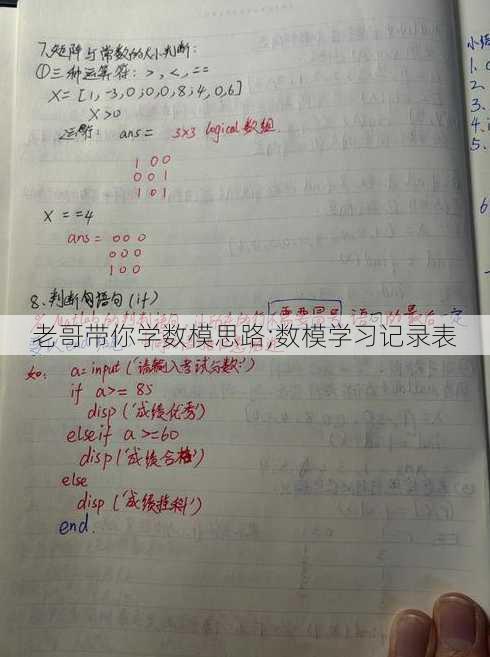 7、矩阵与常数的大小判断：
①三种运算符：>，<，==
X=[1,-3,0;0,0,8;4,0,6]
X>0
运行： ans= 3x3 logical 数组
1 0 0
0 0 1
1 0 1
X ==4
ans= 0 0 0
0 0 0
1 0 0
8、判断语句(if)
需要冒号 语句的最后一定
老哥带你学数模思路;数模学习记录表
如： a=input('请输入考试分数:')
if a>=85
disp('成绩优秀')
elseif a>=60
disp('成绩合格')
else
disp('成绩挂科')
end.
小结
1.
2.
3.
4.
5.
6